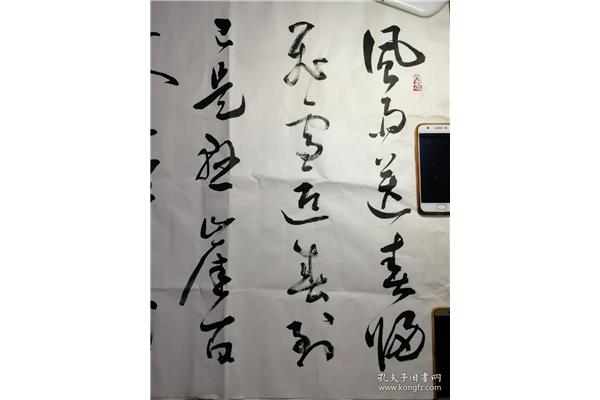 風雨送春歸
飛雪迎春到
已是懸崖百
孔夫子旧书网
www.kongfz.com